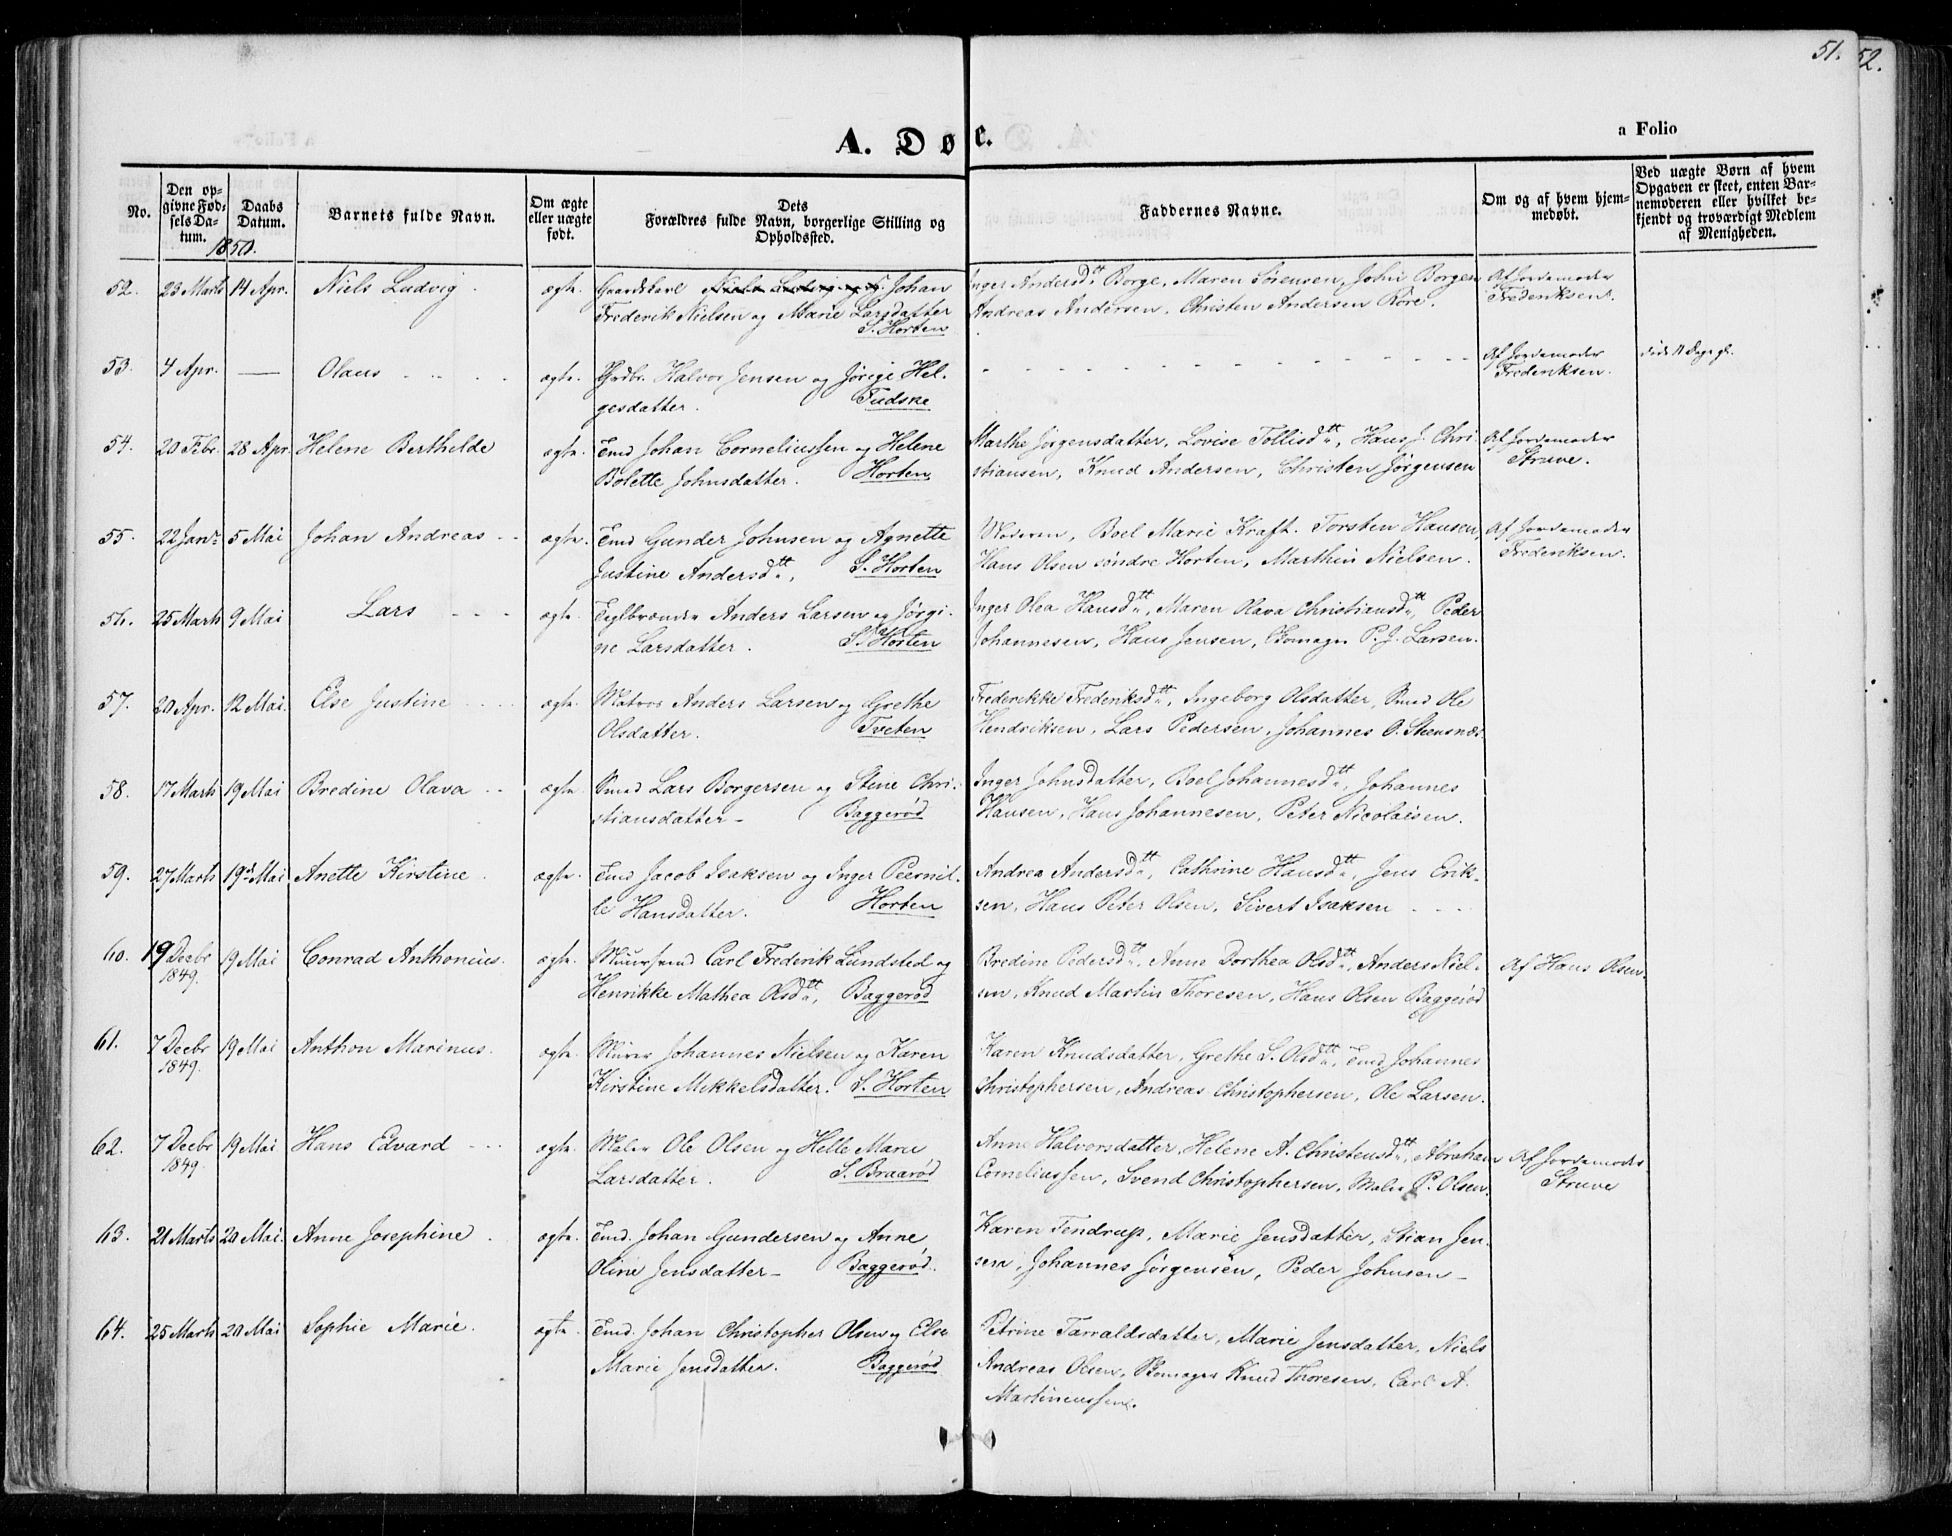 51.
52.
A. Døe.
a Folio
No.
Den op-
givne Fød-
sels Da-
tum.
Daabs
Datum.
1850.
Barnets fulde Navn.
Om ægte
eller uægte
født.
Dets
Forældres fulde Navn, borgerlige Stilling og
Opholdssted.
Faddernes Navne.
Om og af hvem hjem-
medøbt.
Ved uægte Børn af hvem
Opgaven er skeet, enten Bar-
nemoderen eller hvilket be-
kjendt og troværdigt Medlem
af Menigheden.
52. 23 Marts 14 Apr. Niels Ludvig. ægte. Gaardskarl Niels Ludvig og Johan Inger Andersdtt. Borge, Maren Sørensen, John Borgen Af Jordemoder
Frederik Nielsen og Marie Larsdatter Andreas Andersen, Christen Andersen Røre. Frederiksen.
S. Horten
53. 4 Apr. — Olaus ægte. Grdbr. Halvor Jensen og Jørige Hel- - - - Af Jordemoder døde 11 Dage gl.
gesdatter. Tudske Frederiksen.
54. 20 Febr. 28 Apr. Helene Berthilde ægte. Tmd Johan Corneliussen og Helene Marthe Jørgensdatter, Lovise Tollisdtt., Hans J. Chri- Af Jordemoder
Bolette Johnsdatter. Horten stiansen, Knud Andersen, Christen Jørgensen Struve.
55. 22 Janr. 5 Mai Johan Andreas - - ægte. Tmd Gunder Johnsen og Agnette Moderen, Boel Marie Kraft. Torsten Hansen, Af Jordemoder
Justine Andersdtt., S. Horten Hans Olsen søndre Horten, Marthin Nielsen. Frederiksen.
56. 25 Marts 9 Mai Lars - - - ægte. Teglbrænder Anders Larsen og Jørgi- Inger Olea Hansdtt., Maren Olava Christiansdtt., Peder
ne Larsdatter. S. Horten Johannesen, Hans Jensen, Skomager P. J. Larsen.
57. 20 Apr. 12 Mai. Else Justine - - - ægte. Matros Anders Larsen og Grethe Frederikke Frederiksdtt., Ingeborg Olsdatter, Smed Ole
Olsdatter. Tveten Hendriksen, Lars Pedersen, Johannes O. Steensnæs.
58. 17 Marts 19 Mai Bredine Olava - - ægte. Smed Lars Borgersen og Stine Chri- Inger Johnsdatter, Boel Johannesdtt., Johannes
stiansdatter - Baggerød Hansen, Hans Johannesen, Peter Nicolaisen.
59. 27 Marts 19d Mai Anette Kirstine. ægte. Tmd Jacob Isaksen og Inger Peernil- Andrea Andersdtt., Cathrine Hansdtt., Jens Erik-
le Hansdatter. Horten sen, Hans Peter Olsen, Sivert Isaksen - - -
60. 19 Decbr 19 Mai Conrad Anthonius. ægte. Muursvend Carl Frederik Lundsted og Bredine Pedersdtt., Anne Dorthea Olsdtt., Anders Niel- Af Hans Olsen.
1849. Henrikke Mathea Olsdtt., Baggerød sen, Knud Martin Thoresen, Hans Olsen Baggerød
61. 7 Decbr 19 Mai Anthon Marinus. ægte. Murer Johannes Nielsen og Karen Karen Knudsdatter, Grethe S. Olsdtt., Tmd Johannes
1849. Kirstine Mikkelsdatter. S. Horten Christophersen, Andreas Christophersen, Ole Larsen.
62. 7 Decbr 19 Mai Hans Edvard - - - ægte. Maler Ole Olsen og Helle Marie Anne Halvorsdatter, Helene A. Christensdtt., Abraham Af Jordemoder
1849. Larsdatter. S. Braarød Corneliussen, Svend Christophersen, Maler P. Olsen. Struve
63. 21 Marts 20 Mai. Anne Josephine . ægte. Tmd. Johan Gundersen og Anne Karen Tendrup, Marie Jensdatter, Stian Jen-
Oline Jensdatter - Baggerød. sen, Johannes Jørgensen, Peder Johnsen -
64. 25 Marts 20 Mai Sophie Marie. ægte. Tmd. Johan Christopher Olsen og Else Petrine Tarraldsdatter, Marie Jensdatter, Niels
Marie Jensdatter. Baggerød Andreas Olsen, Skomager Knud Thoresen, Carl A.
Martinussen.